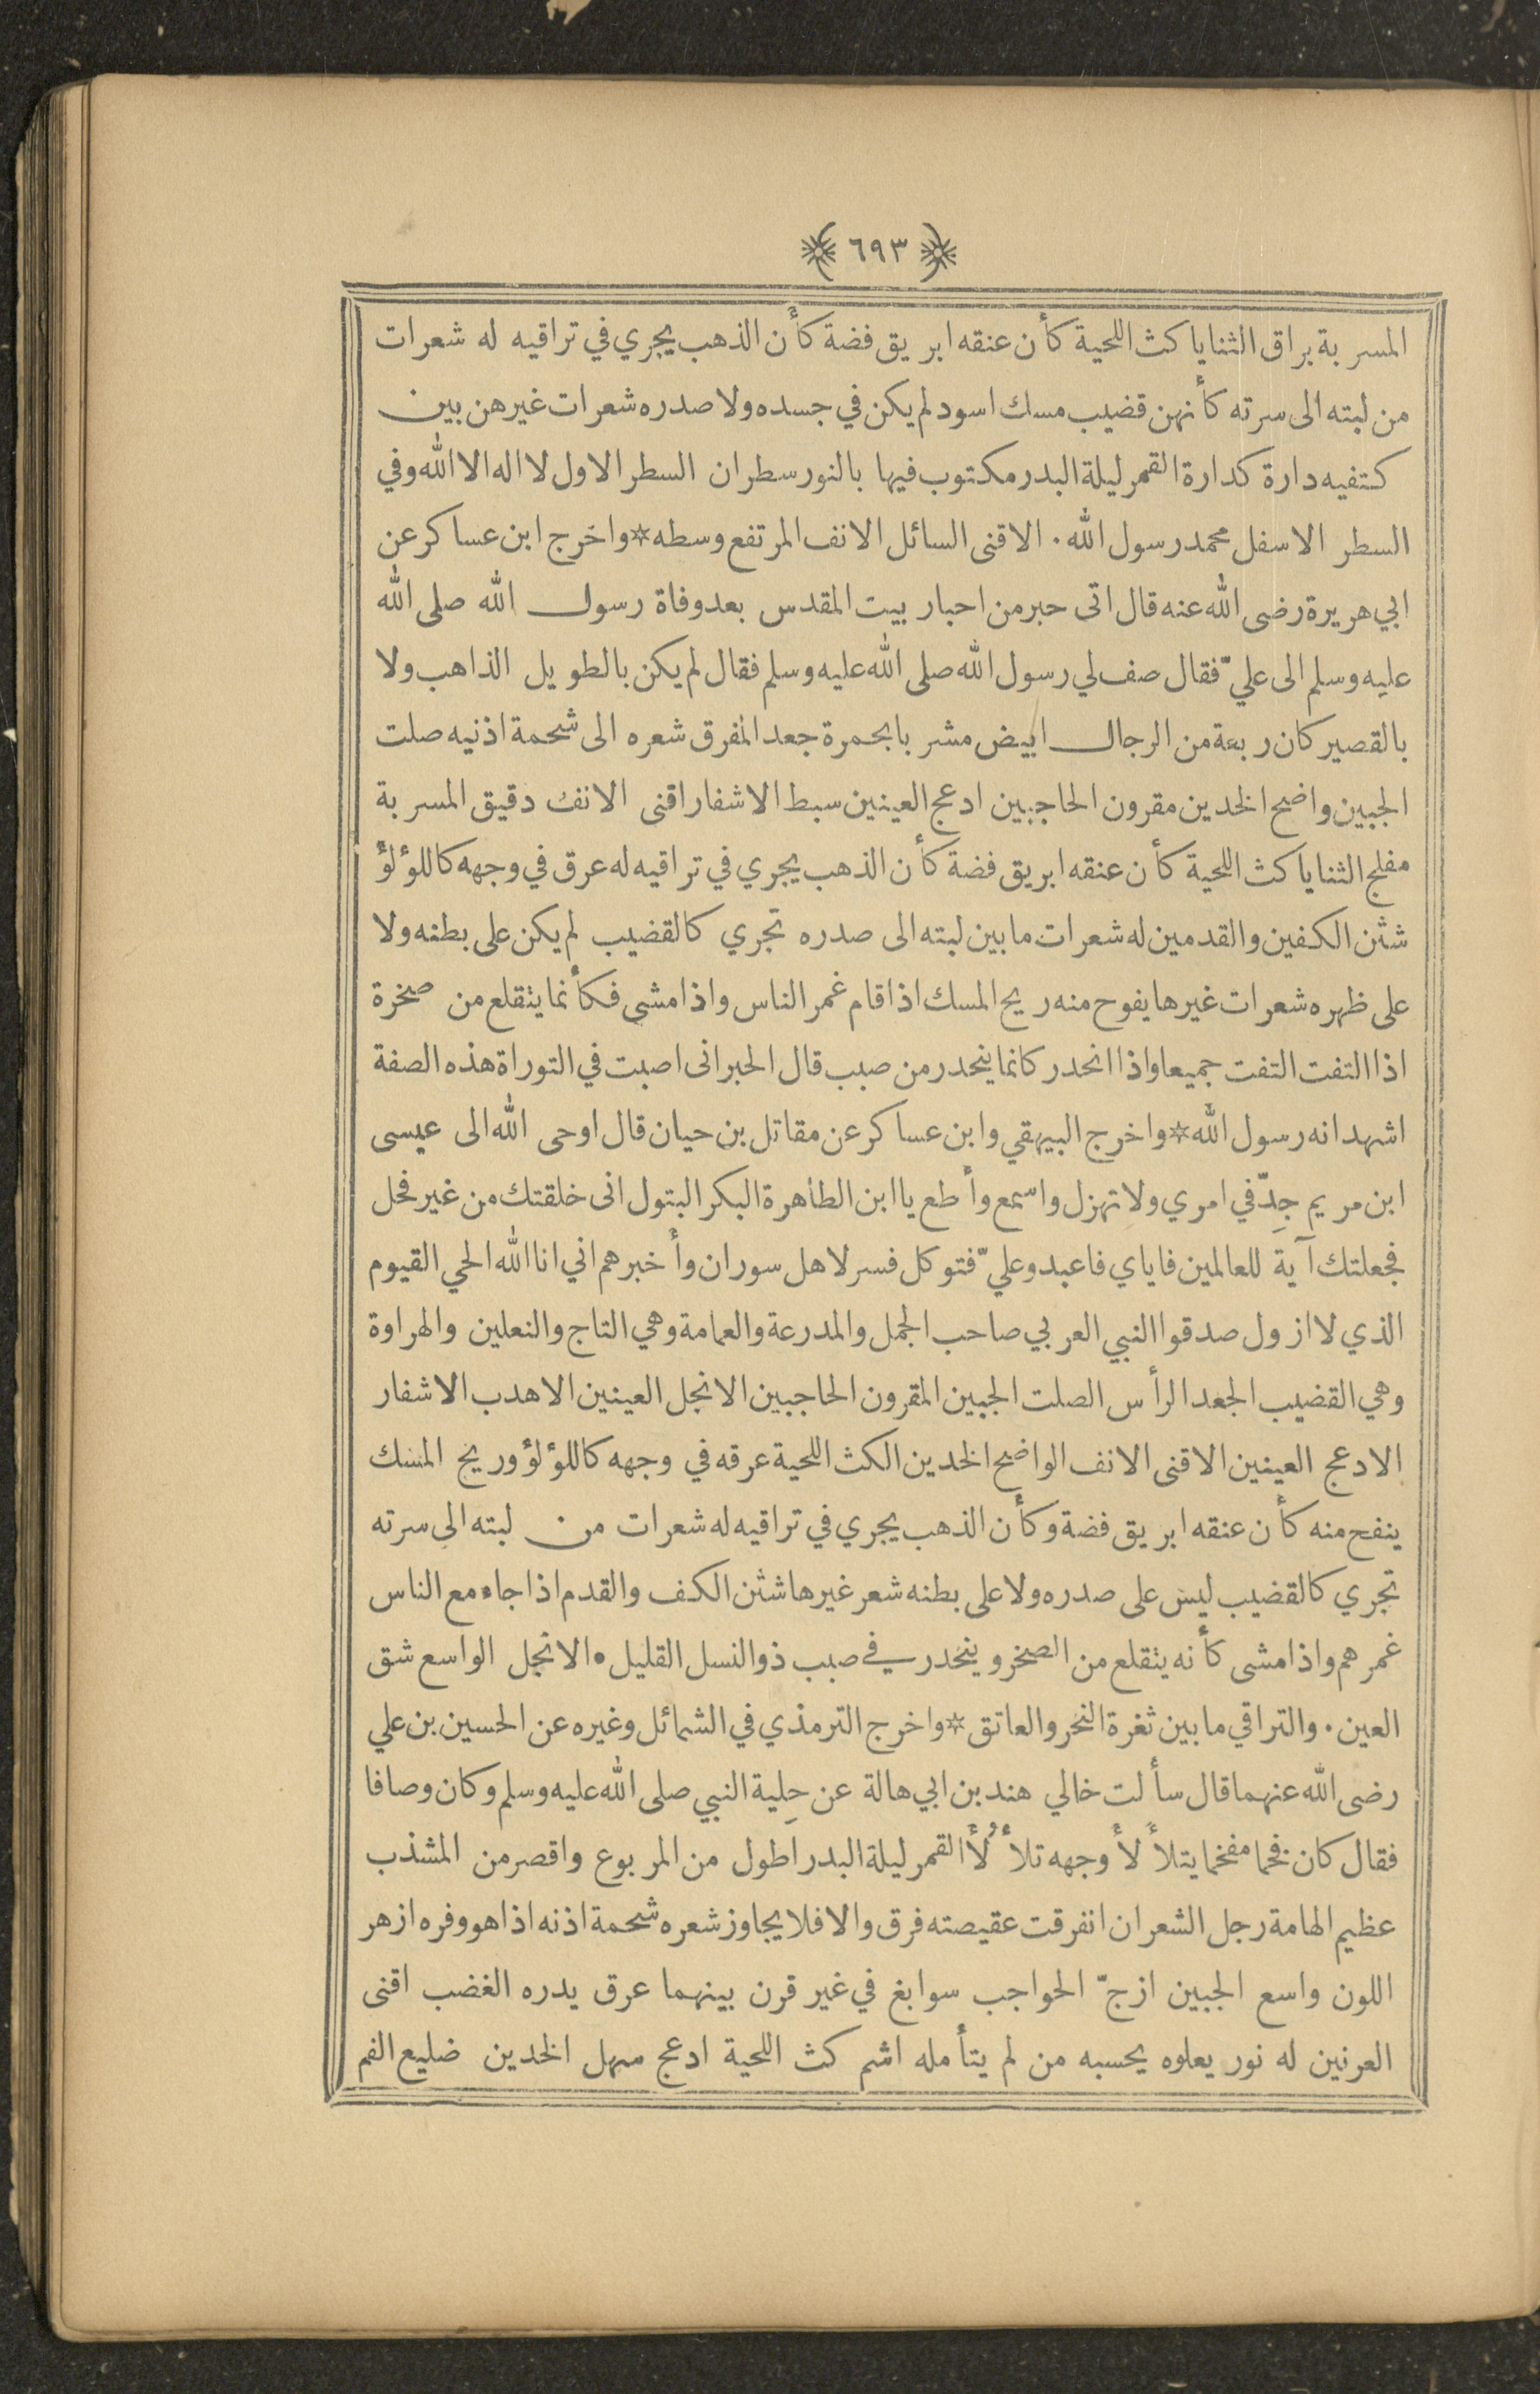 ﴿ ٦٩٣ ﴾
المسربة براق الثنايا كث اللحية كأن عنقه ابريق فضة كأن الذهب يجري في تراقيه له شعرات
من لبته الى سرته كأنهن قضيب مسك اسود لم يكن في جسده ولا صدره شعرات غيرهن بين
كتفيه دارة كدارة القمر ليلة البدر مكتوب فيها بالنور سطران السطر الاول لا اله الا الله وفي
السطر الاسفل محمد رسول الله . الاقنى السائل الانف المرتفع وسطه * واخرج ابن عساكر عن
ابي هريرة رضى الله عنه قال اتى حبر من احبار بيت المقدس بعد وفاة رسول الله صلى الله
عليه وسلم الى عليّ فقال صف لي رسول الله صلى الله عليه وسلم فقال لم يكن بالطويل الذاهب ولا
بالقصير كان ربعة من الرجال ابيض مشربا بحمرة جعد المفرق شعره الى شحمة اذنيه صلت
الجبين واضح الخدين مقرون الحاجبين ادعج العينين سبط الاشفار اقنى الانف دقيق المسربة
مفلج الثنايا كث اللحية كأن عنقه ابريق فضة كأن الذهب يجري في تراقيه له عرق في وجهه كاللؤلؤ
شثن الكفين والقدمين له شعرات ما بين لبته الى صدره تجري كالقضيب لم يكن على بطنه ولا
على ظهره شعرات غيرها يفوح منه ريح المسك اذا قام غمر الناس واذا مشى فكأنما يتقلع من صخرة
اذا التفت التفت جميعا واذا انحدر كانما ينحدر من صبب قال الحبر انى اصبت في التوراة هذه الصفة
اشهد انه رسول الله * واخرج البيهقي وابن عساكر عن مقاتل بن حيان قال اوحى الله الى عيسى
ابن مريم جِدّ في امري ولا تهزل واسمع وأطع يا ابن الطاهرة البكر البتول انى خلقتك من غير فحل
فجعلتك آية للعالمين فاياي فاعبد وعليّ فتوكل فسر لاهل سوران وأخبرهم اني انا الله الحي القيوم
الذي لا ازول صدقوا النبي العربي صاحب الجمل والمدرعة والعمامة وهي التاج والنعلين والهراوة
وهي القضيب الجعد الرأس الصلت الجبين المقرون الحاجبين الانجل العينين الاهدب الاشفار
الادعج العينين الاقنى الانف الواضح الخدين الكث اللحية عرقه في وجهه كاللؤلؤ وريح المسك
ينفح منه كأن عنقه ابريق فضة وكأن الذهب يجري في تراقيه له شعرات من لبته الى سرته
تجري كالقضيب ليس على صدره ولا على بطنه شعر غيرها شثن الكف والقدم اذا جاء مع الناس
غمرهم واذا مشى كأنه يتقلع من الصخر وينحدر في صبب ذو النسل القليل . الانجل الواسع شق
العين . والتراقي ما بين ثغرة النحر والعاتق * واخرج الترمذي في الشمائل وغيره عن الحسين بن علي
رضى الله عنهما قال سألت خالي هند بن ابي هالة عن حِلية النبي صلى الله عليه وسلم وكان وصافا
فقال كان فخما مفخما يتلأْلأُ وجهه تلأْلُأَ القمر ليلة البدر اطول من المربوع واقصر من المشذب
عظيم الهامة رجل الشعر ان انفرقت عقيصته فرق والا فلا يجاوز شعره شحمة اذنه اذا هو وفره ازهر
اللون واسع الجبين ازجّ الحواجب سوابغ في غير قرن بينهما عرق يدره الغضب اقنى
العرنين له نور يعلوه يحسبه من لم يتأمله اشم كث اللحية ادعج سهل الخدين ضليع الفم